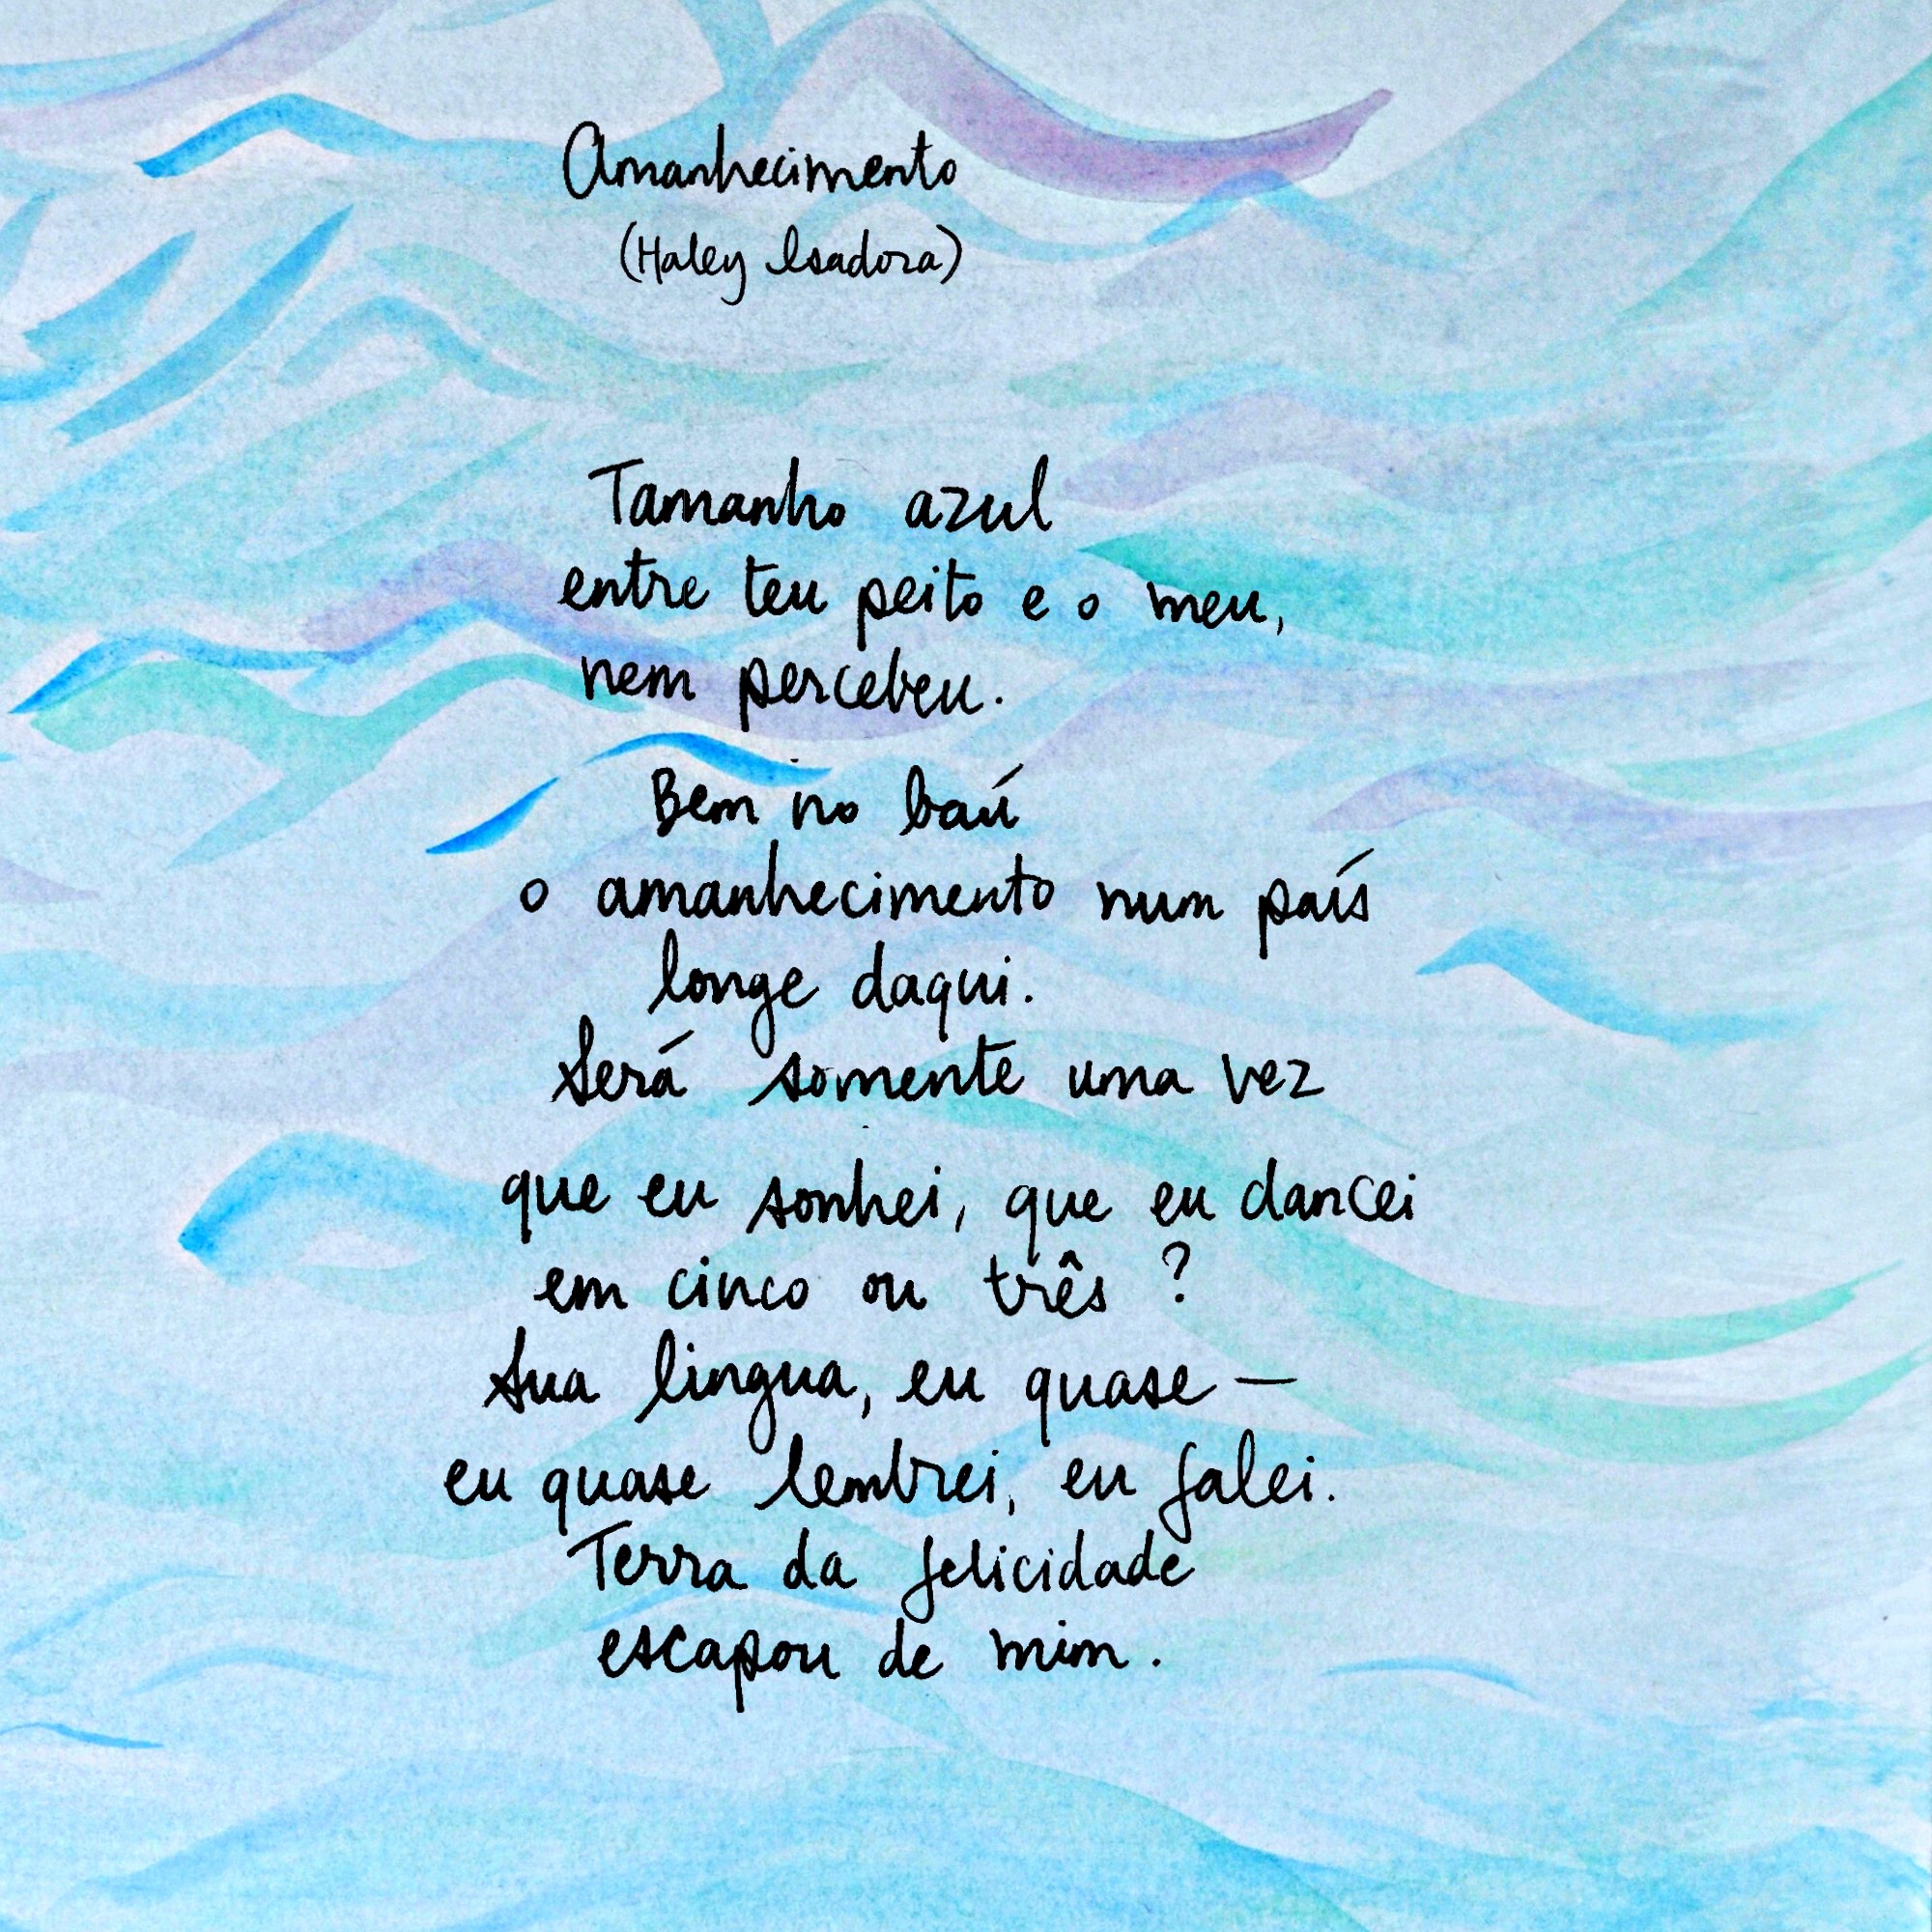 Amanhecimento
(Haley Isadora)
Tamanho azul
entre teu peito e o meu,
nem percebeu.
Bem no baú
o amanhecimento num país
longe daqui.
Será somente uma vez
que eu sonhei, que eu dancei
em cinco ou três ?
Sua lingua, eu quase —
eu quase lembrei, eu falei.
Terra da felicidade
escapou de mim.